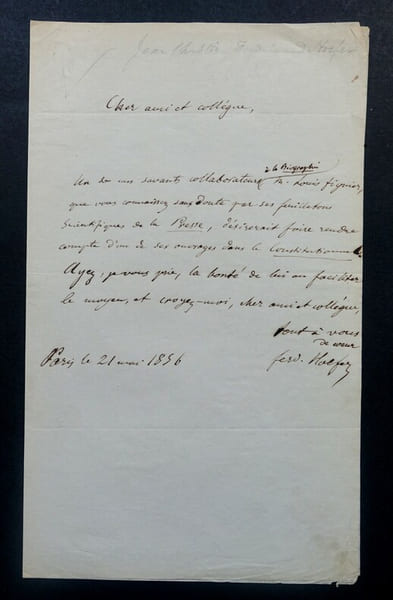 Jean Chrétien Ferdinand Hoefer
Cher ami et collègue,
à la Biographie
Un de mes savants collaborateurs, M. Louis Figuier,
que vous connaissez sans doute par ses feuilletons
scientifiques de la Presse, désirerait faire rendre
compte d'un de ses ouvrages dans le Constitutionnel.
Ayez, je vous prie, la bonté de lui en faciliter
le moyen, et croyez-moi, cher ami et collègue,
tout à vous
de cœur
Paris le 21 mai 1856
ferd. Hoefer